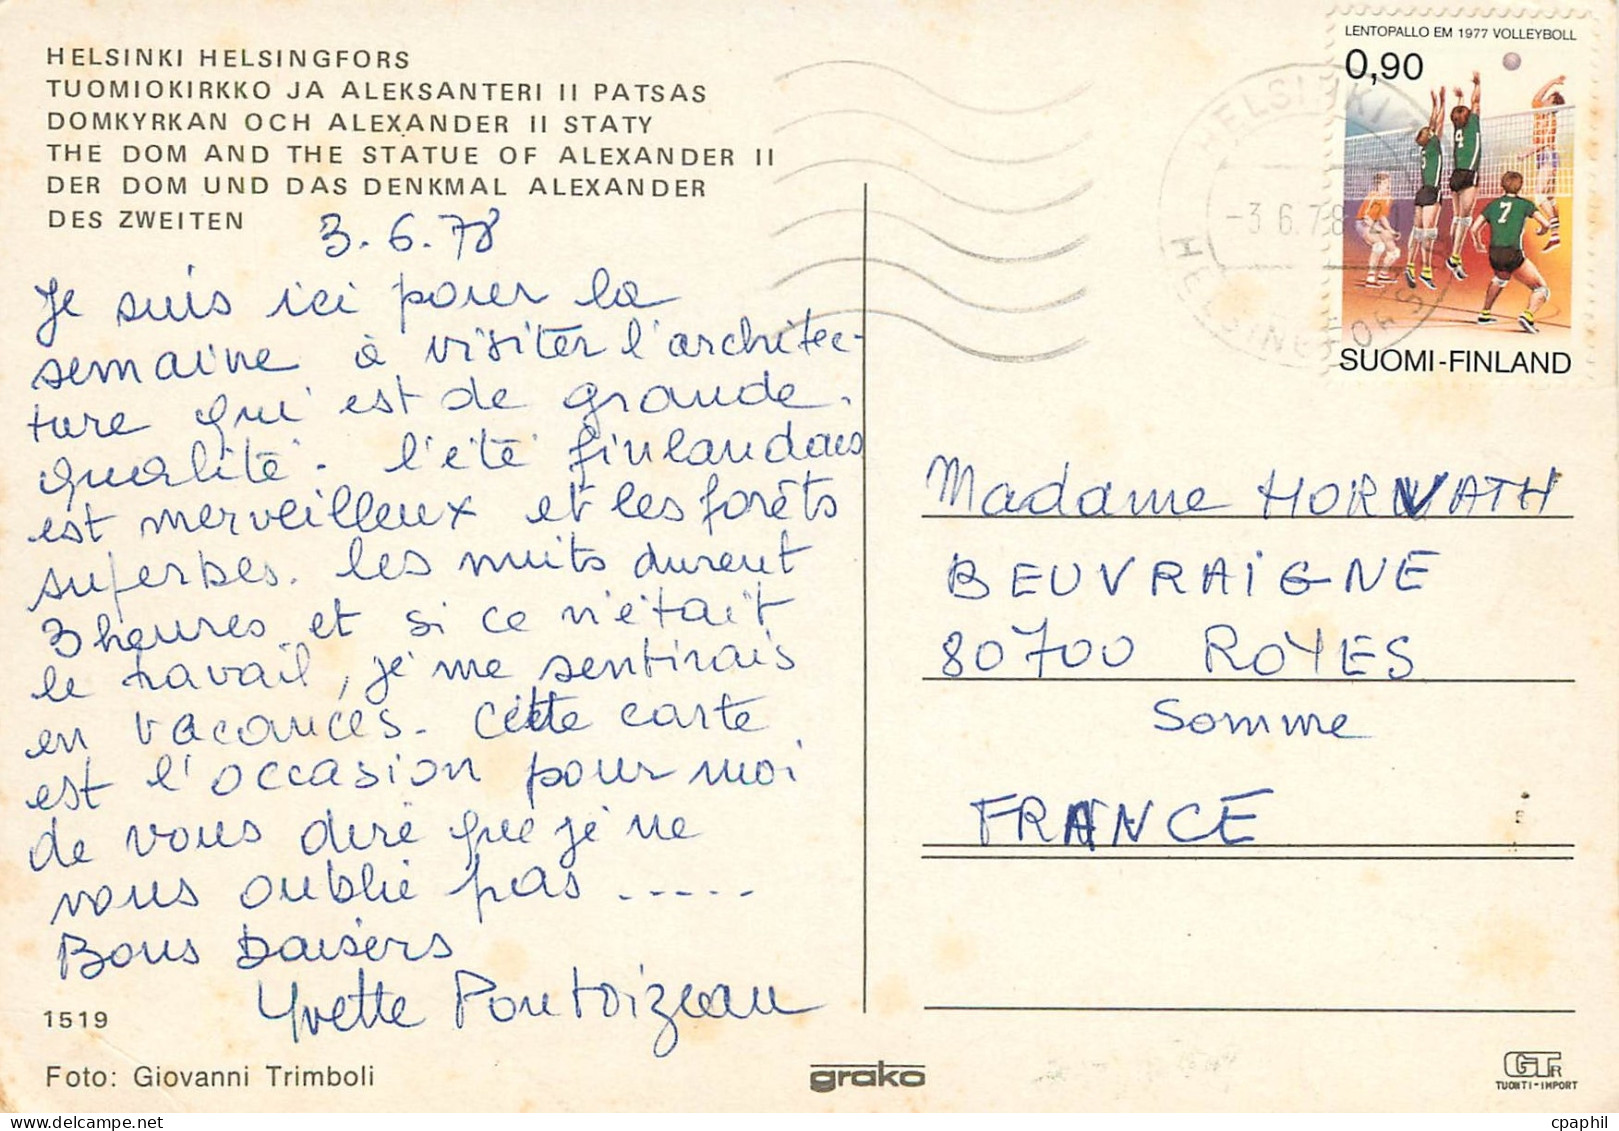 HELSINKI HELSINGFORS
TUOMIOKIRKKO JA ALEKSANTERI II PATSAS
DOMKYRKAN OCH ALEXANDER II STATY
THE DOM AND THE STATUE OF ALEXANDER II
DER DOM UND DAS DENKMAL ALEXANDER
DES ZWEITEN
3.6.78
Je suis ici pour la
semaine à visiter l'architec-
ture qui est de grande
qualité. l'été finlandais
est merveilleux et les forêts
superbes. les nuits durent
3 heures et si ce n'était
le travail, je me sentirais
en vacances. Cette carte
est l'occasion pour moi
de vous dire que je ne
vous oublie pas .....
Bons baisers
Yvette Pontoizeau
1519
Foto: Giovanni Trimboli
grako
LENTOPALLO EM 1977 VOLLEYBOLL
0,90
5
4
7
SUOMI-FINLAND
HELSINKI
-3.6.78
HELSINGFORS
Madame HORVATH
BEUVRAIGNE
80700 ROYES
Somme
FRANCE
GTR
TUONTI-IMPORT
cpaphil